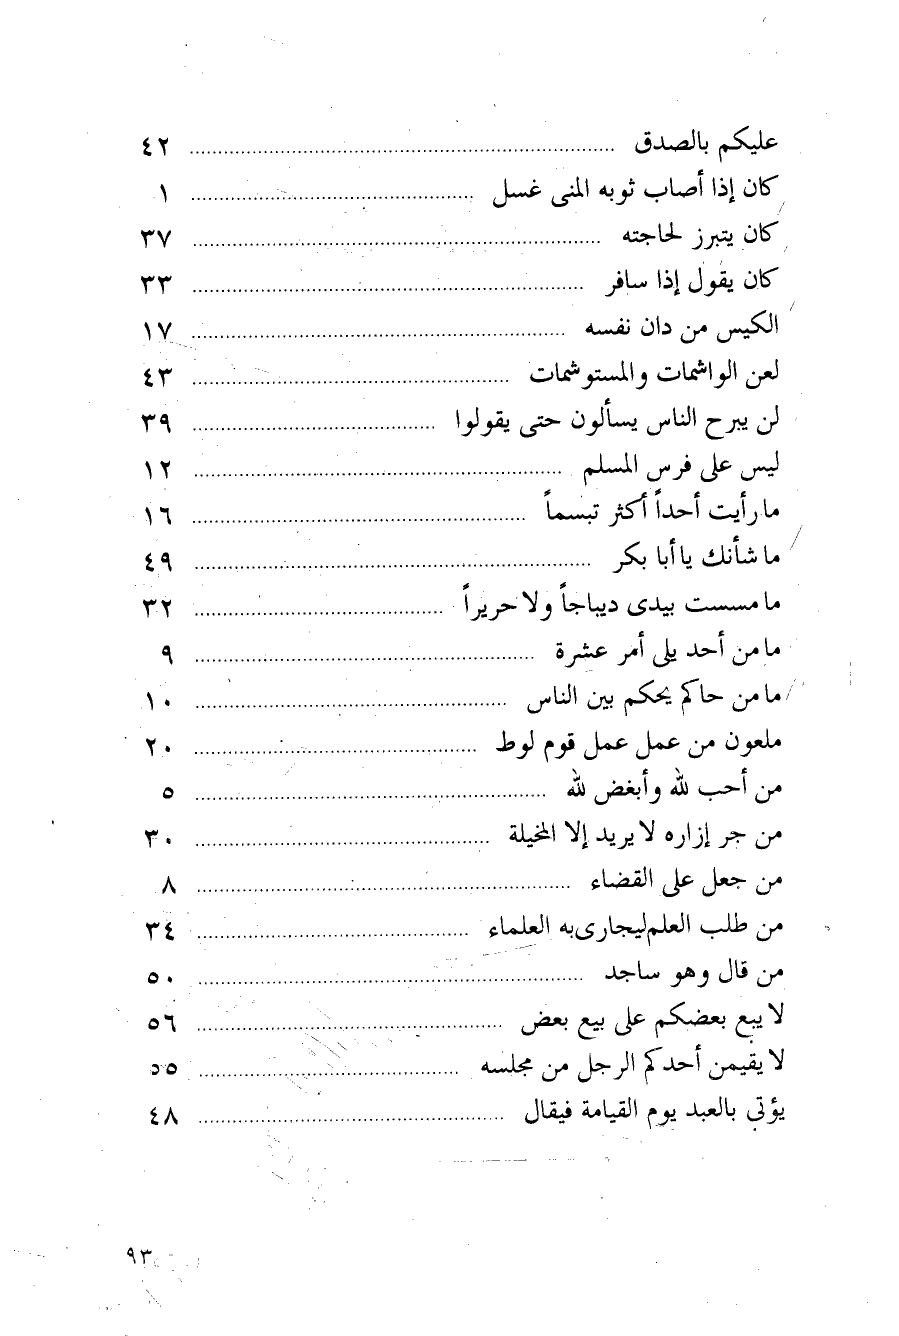 عليكم بالصدق ........ ٤٢
كان إذا أصاب ثوبه المنى غسل ........ ١
كان يتبرز لحاجته ........ ٣٧
كان يقول إذا سافر ........ ٣٣
الكيس من دان نفسه ........ ١٧
لعن الواشمات والمستوشمات ........ ٤٣
لن يبرح الناس يسألون حتى يقولوا ........ ٣٩
ليس على فرس المسلم ........ ١٢
ما رأيت أحداً أكثر تبسماً ........ ١٦
ما شأنك يا أبا بكر ........ ٤٩
ما مسست بيدى ديباجاً ولا حريراً ........ ٣٢
ما من أحد يلى أمر عشرة ........ ٩
ما من حاكم يحكم بين الناس ........ ١٠
ملعون من عمل عمل قوم لوط ........ ٢٠
من أحب لله وأبغض لله ........ ٥
من جر إزاره لا يريد إلا المخيلة ........ ٣٠
من جعل على القضاء ........ ٨
من طلب العلم ليجارى به العلماء ........ ٣٤
من قال وهو ساجد ........ ٥٠
لا يبع بعضكم على بيع بعض ........ ٥٦
لا يقيمن أحدكم الرجل من مجلسه ........ ٥٥
يؤتى بالعبد يوم القيامة فيقال ........ ٤٨
٩٣